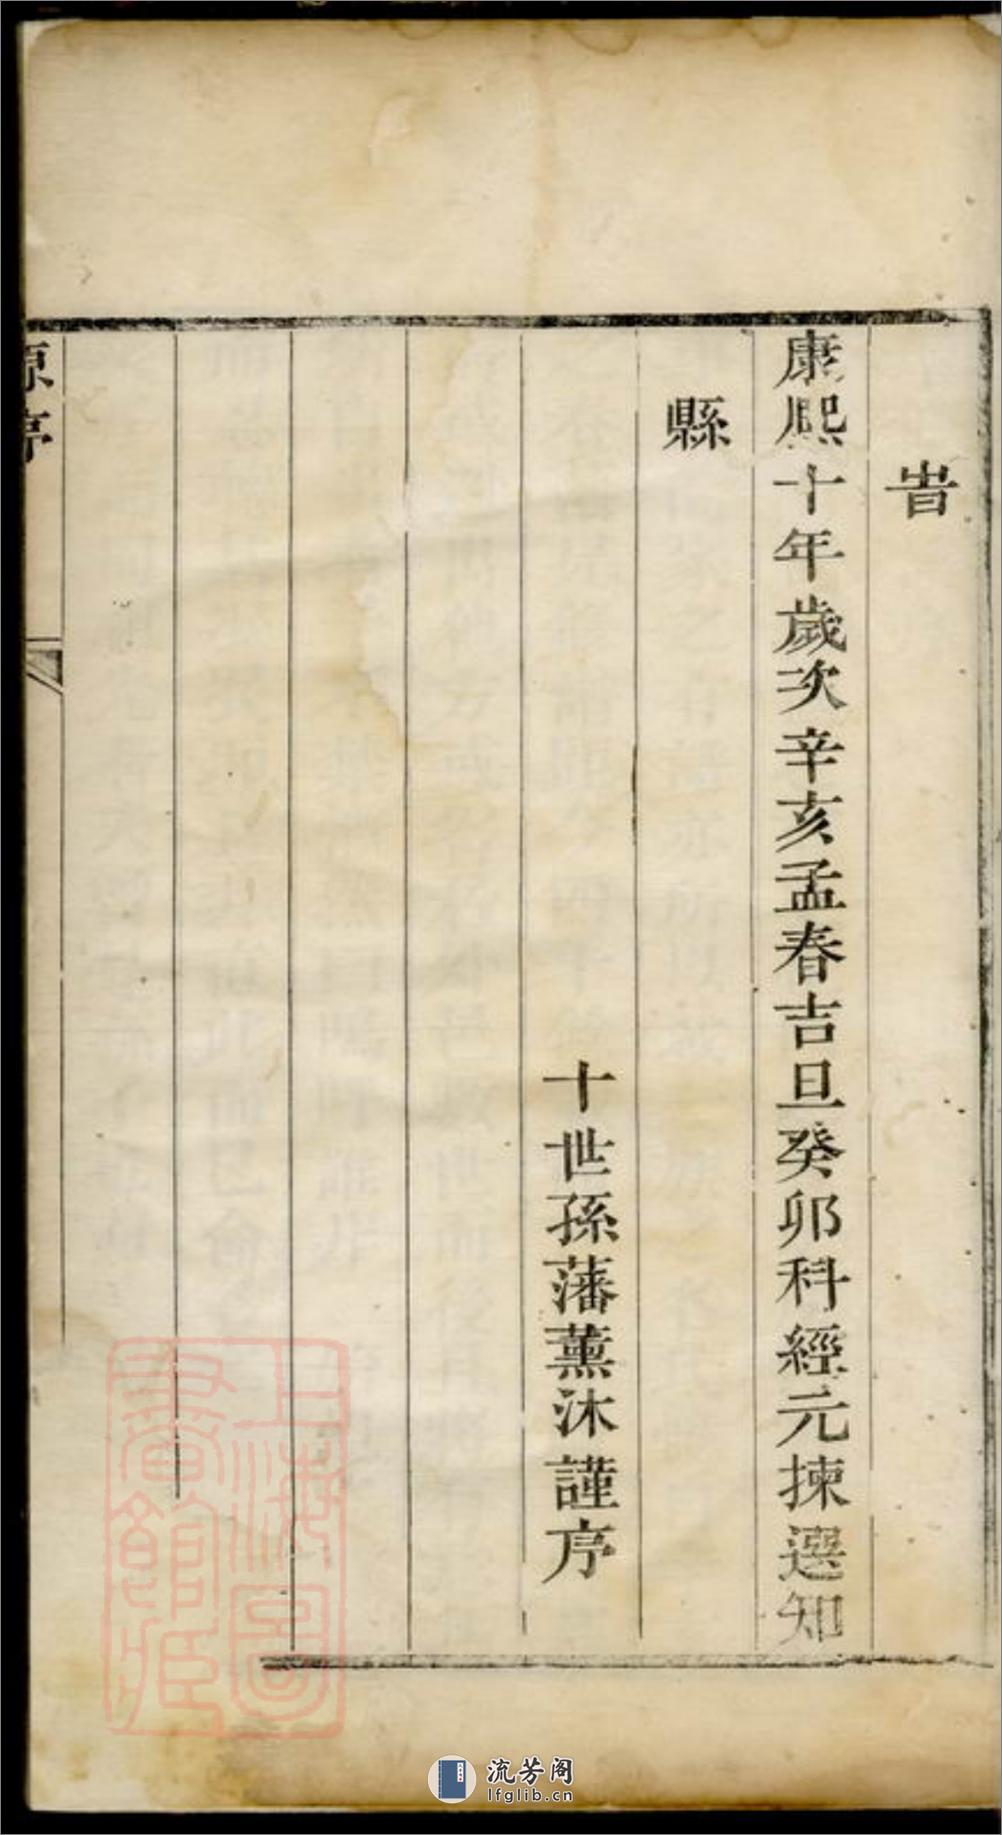 旹
康熙十年歲次辛亥孟春吉旦癸卯科經元揀選知
縣
十世孫藩薰沐謹序
原序
上海圖書館藏
流芳阁
lfglib.cn